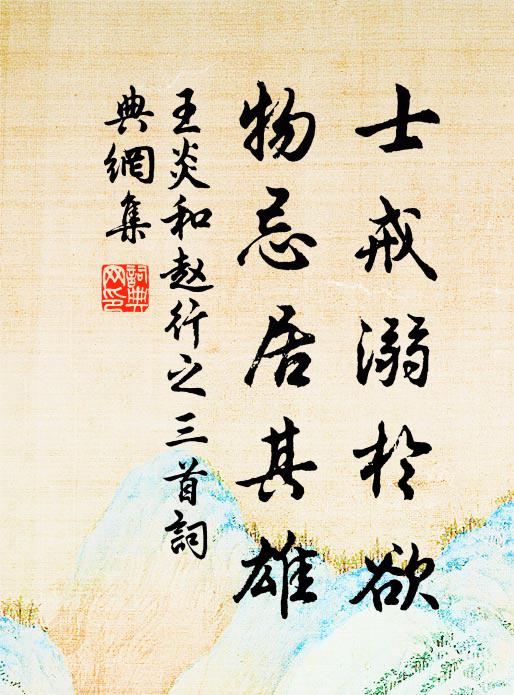 士戒溺於欲
物忌居其雄
王炎和赵行之三首詞
典網集
詞典
网印